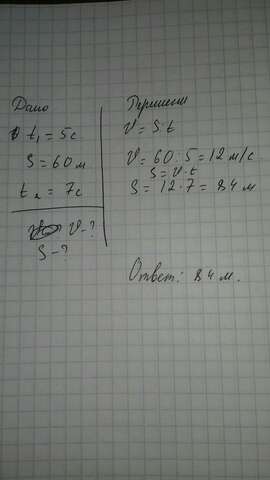 Дано
t₁ = 5с
S = 60 м
t₂ = 7с
V-?
S-?
Решение
V = S:t
V = 60:5 = 12 м/с
S = V·t
S = 12·7 = 84 м
Ответ: 84 м.